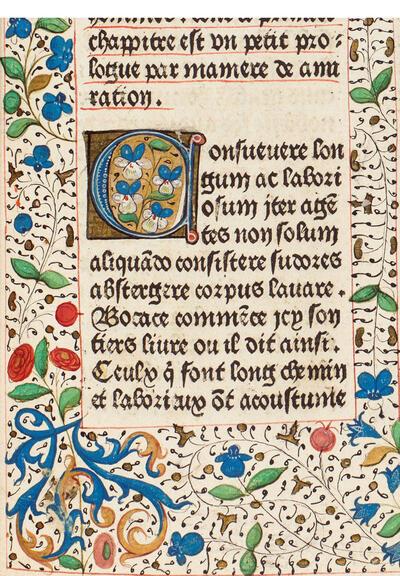 chappitre est vn petit pro-
logue par maniere de ami
ration .
Consueuere lon
gum ac labori
osum jter agē
tes non solum
aliquādo consistere sudores
abstergere corpus lauare .
Bocace commēce jcy son
tiers liure ou il dit ainsi .
Ceulx q̄ font long chemin
et laborieux ōt acoustume